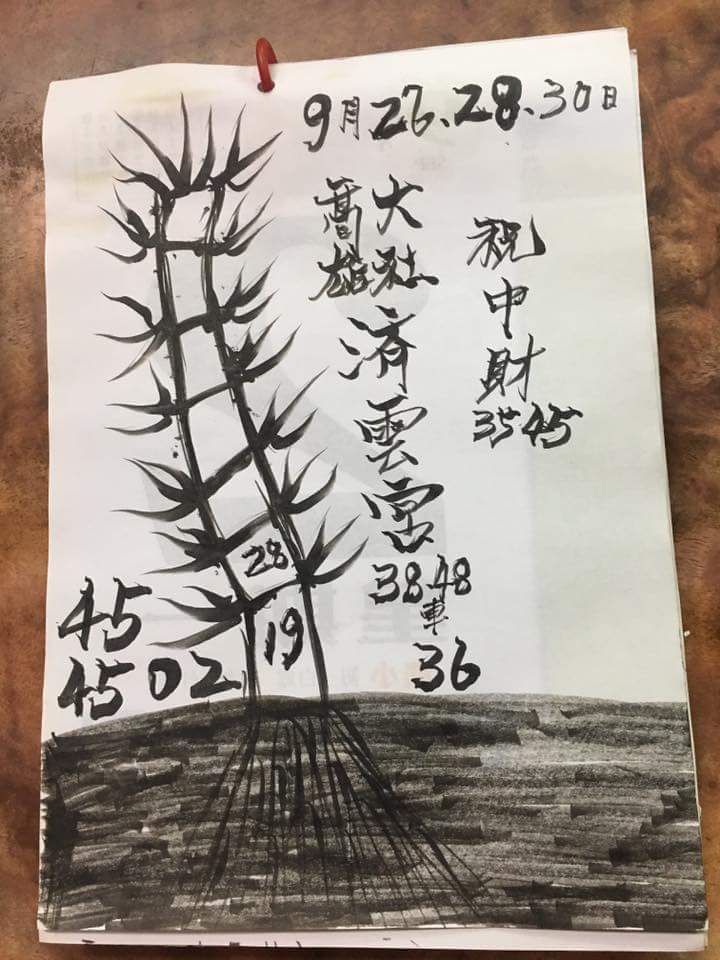 9月26.28.30日
祝中財
35 45
大社
高雄
済雲宮
38 48
車
36
28
19
45
45 02